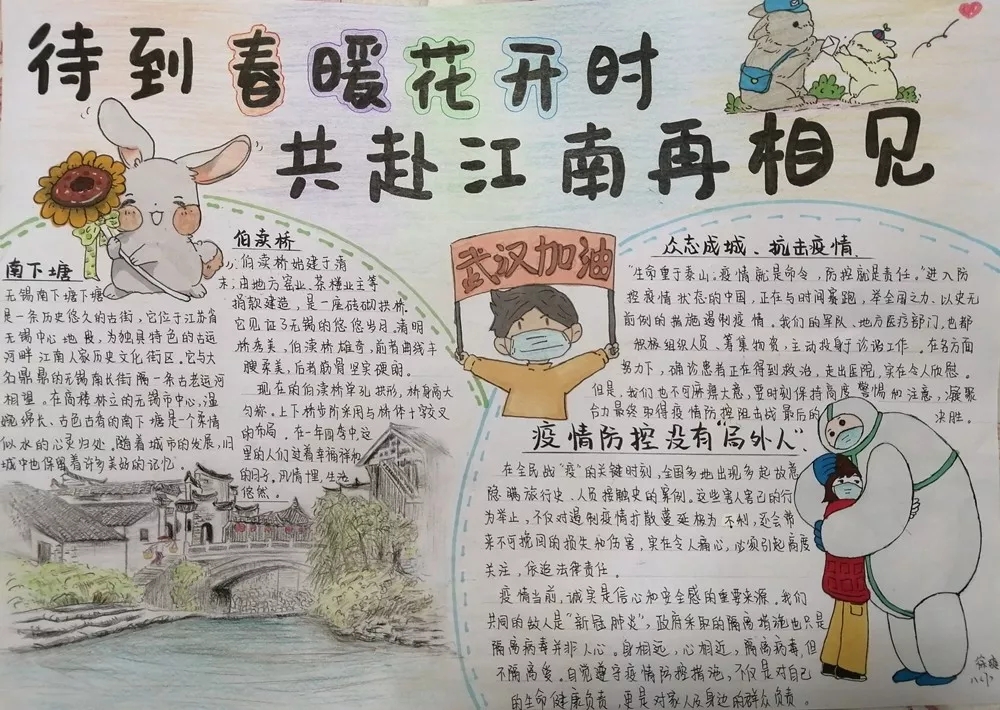 待到春暖花开时
共赴江南再相见
南下塘
无锡南下塘下塘
是一条历史悠久的古街,它位于江苏省
无锡中心地段,为独具特色的古运
河畔江南人家历史文化街区。它与大
名鼎鼎的无锡南长街隔一条古老运河
相望。在高楼林立的无锡市中心,温
婉绵长、古色古香的南下塘是一个柔情
似水的心灵归处。随着城市的发展,旧
城中也保留着许多美好的记忆
伯渎桥
伯渎桥始建于清
末,由地方窑业、茶楼业主等
捐款建造,是一座砖砌拱桥。
它见证了无锡的悠悠岁月。清明
桥秀美,伯渎桥雄奇,前者曲线丰
腴柔美,后者筋骨坚实硬朗。
现在的伯渎桥单孔拱形,桥身高大
匀称。上下桥步阶采用与桥体十字交叉
的布局。在一年四季中,这
里的人们过着幸福祥和
的日子。风情里,生活
悠然。
武汉加油
众志成城、抗击疫情.
“生命重于泰山,疫情就是命令,防控就是责任。”进入防
控疫情状态的中国,正在与时间赛跑,举全国之力、以史无
前例的措施遏制疫情。我们的军队、地方医疗部门,也都
积极组织人员、筹集物资,主动投身于诊治工作。在各方面
努力下,确诊患者正在得到救治,走出医院,实在令人欣慰。
但是,我们也不可麻痹大意,要时刻保持高度警惕和注意,凝聚
合力最终取得疫情防控阻击战最后的决胜。
疫情防控没有“局外人”
在全民战“疫”的关键时刻,全国多地出现多起故意
隐瞒旅行史、人员接触史的案例。这些害人害己的行
为举止,不仅对遏制疫情扩散蔓延极为不利,还会带
来不可挽回的损失和伤害,实在令人痛心,必须引起高度
关注,依追法律责任。
疫情当前,诚实是信心和安全感的重要来源。我们
共同的敌人是“新冠肺炎”,政府采取的隔离措施也只是
隔离病毒并非人心。身相远,心相近,隔离病毒,但
不隔离爱。自觉遵守疫情防控措施,不仅是对自己
的生命健康负责,更是对家人及身边的群众负责。